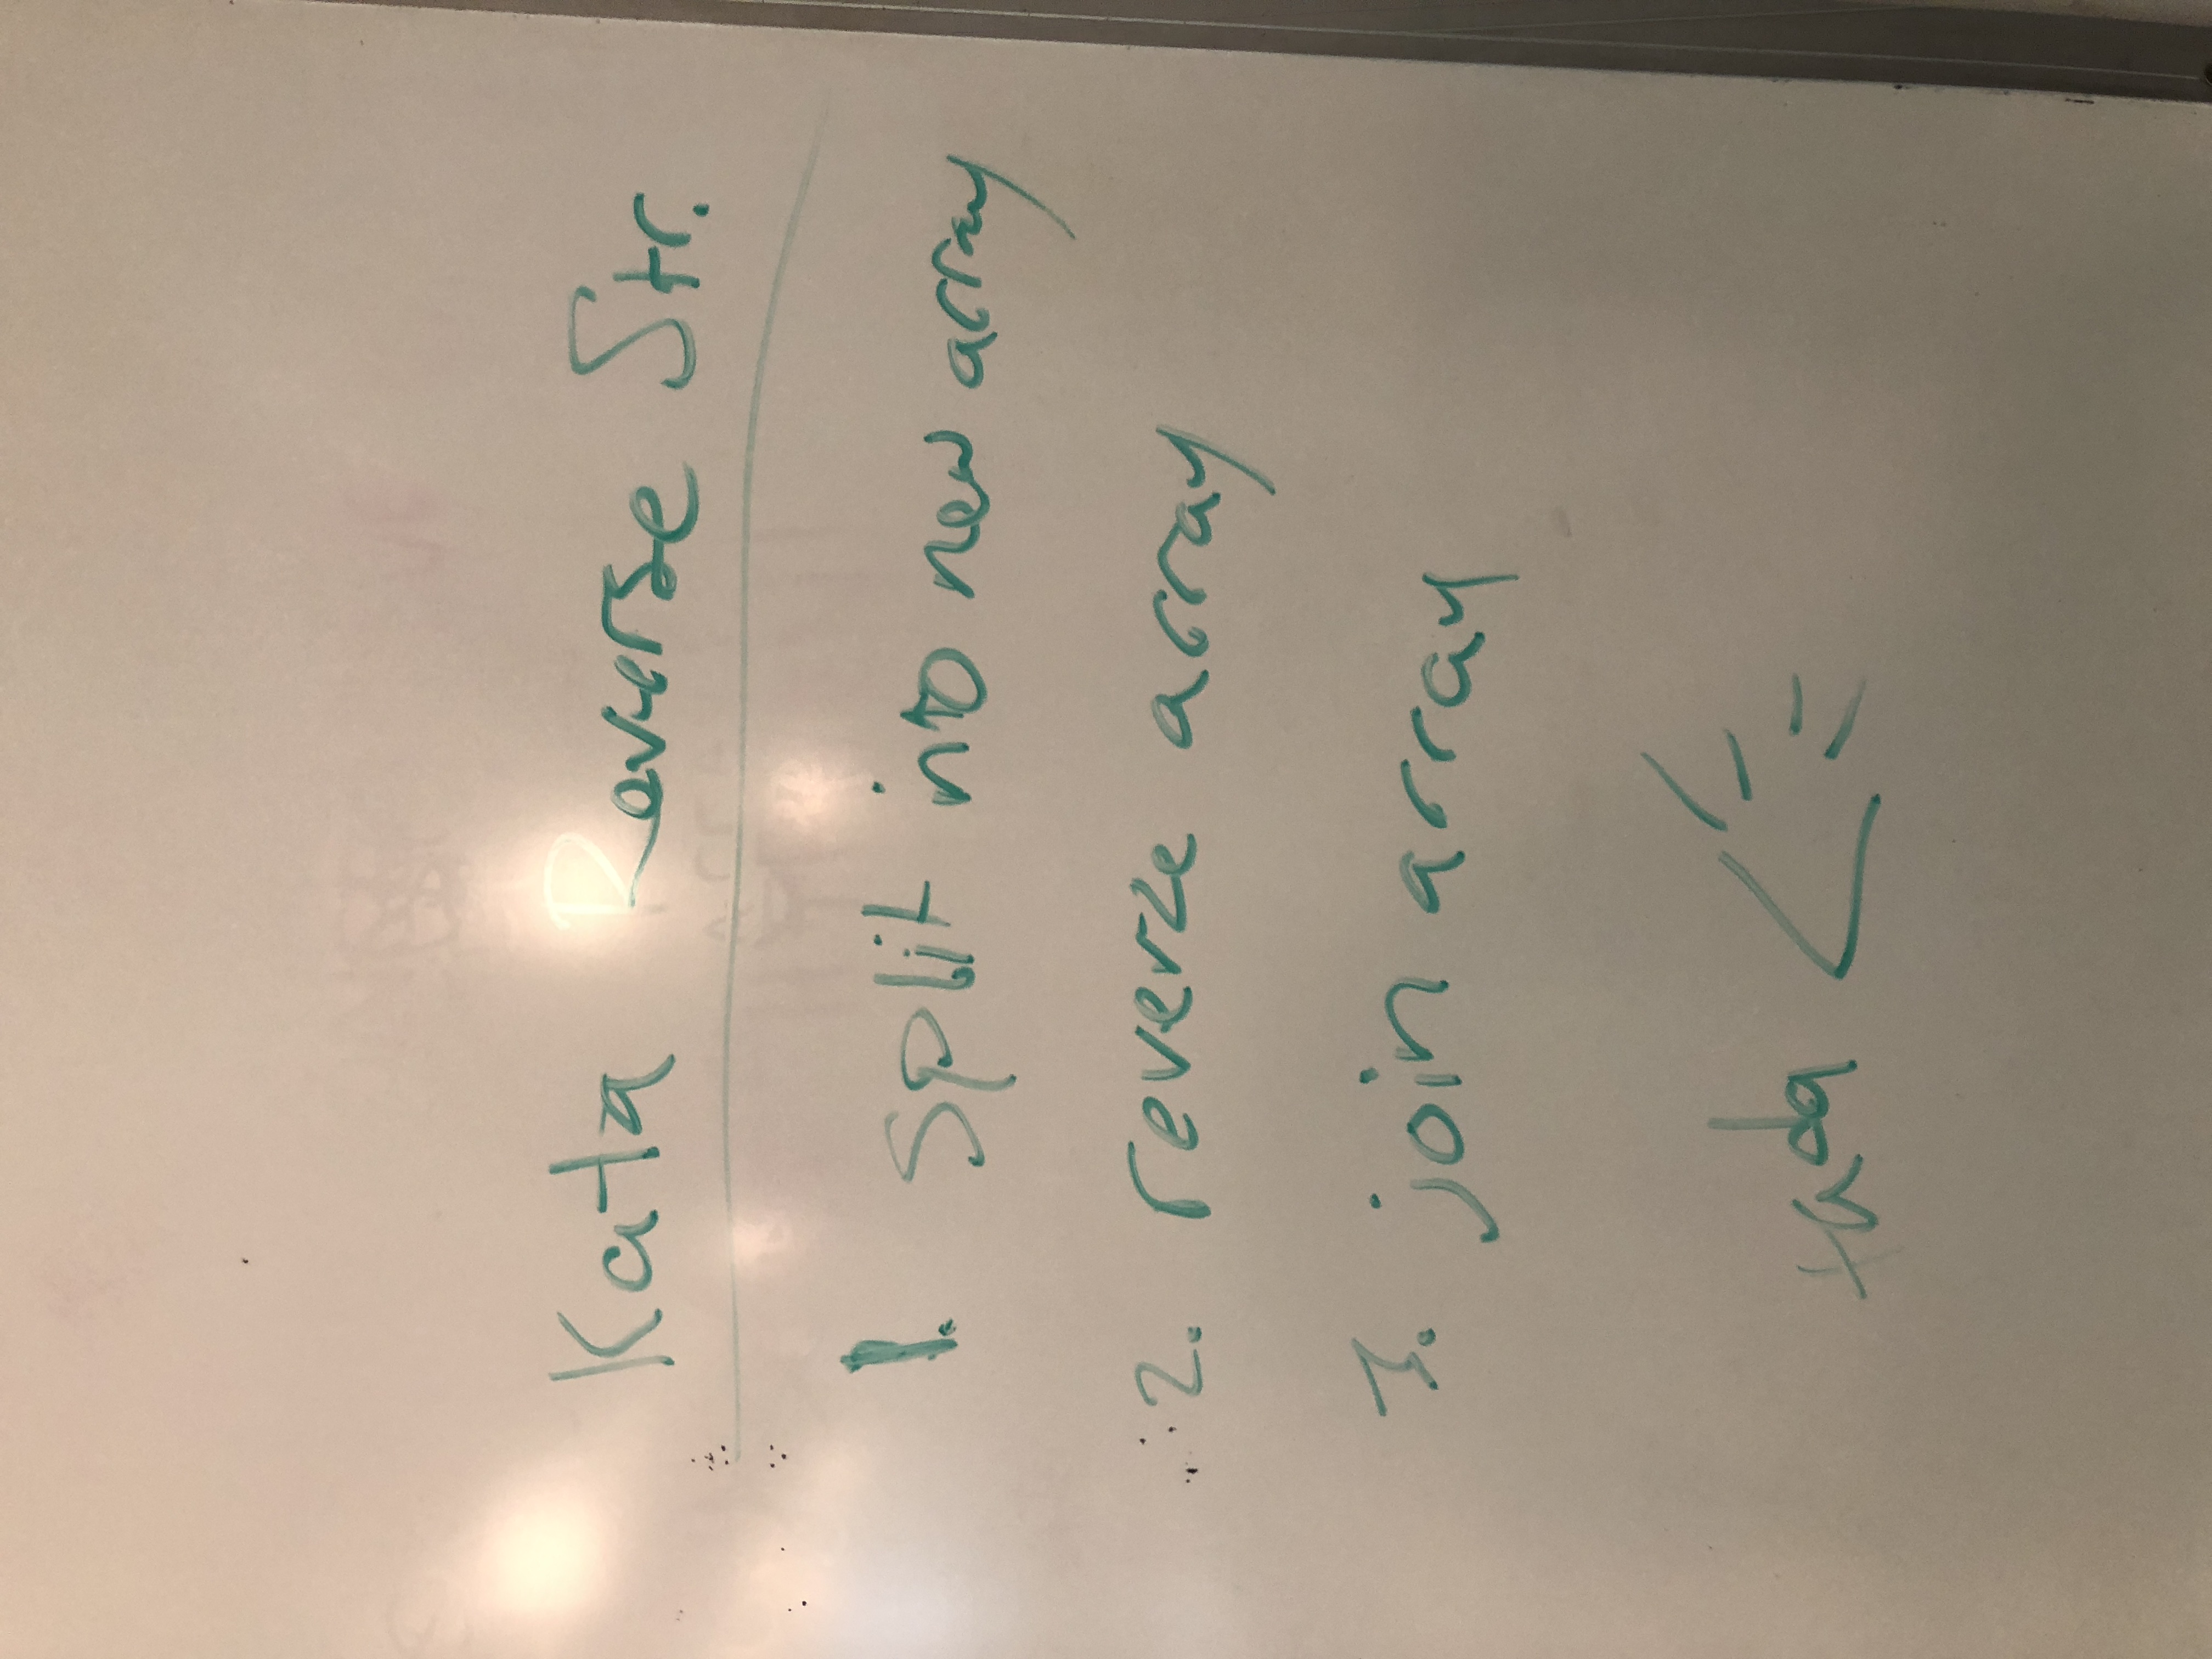 Kata Reverse Str.
1. split into new array
2. reverse array
3. join array
tada